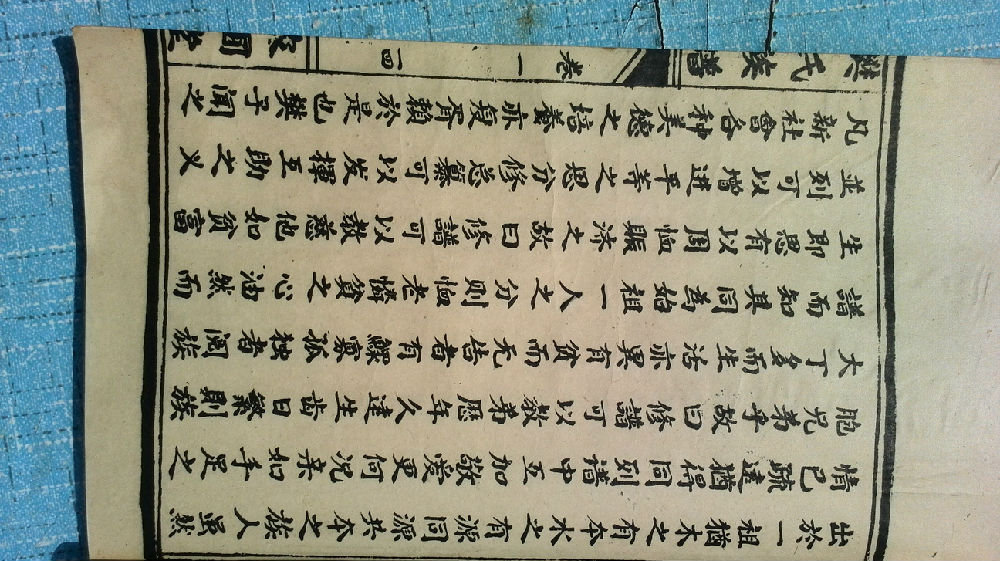 出於一祖猶木之有本水之有源同源共本之族人虽然
情已疏遠猶得同列譜中互加敬爱更何况亲如手足之
胞兄弟乎故曰修譜可以教弟歷年久達生齿日繁則族
大丁多而生活亦異有貧而无告者有鰥寡孤独者阅族
譜而知其同為始祖一人之分则恤老憐貧之心油然而
生即思有以周恤賑济之故曰修譜可以教慈他如貧富
並列可以增進平等之思分修总纂可以发揮互助之义
凡新社會各种美德之培養亦复胥賴於是也樊子闻之
樊氏族譜
卷一
一四
堂